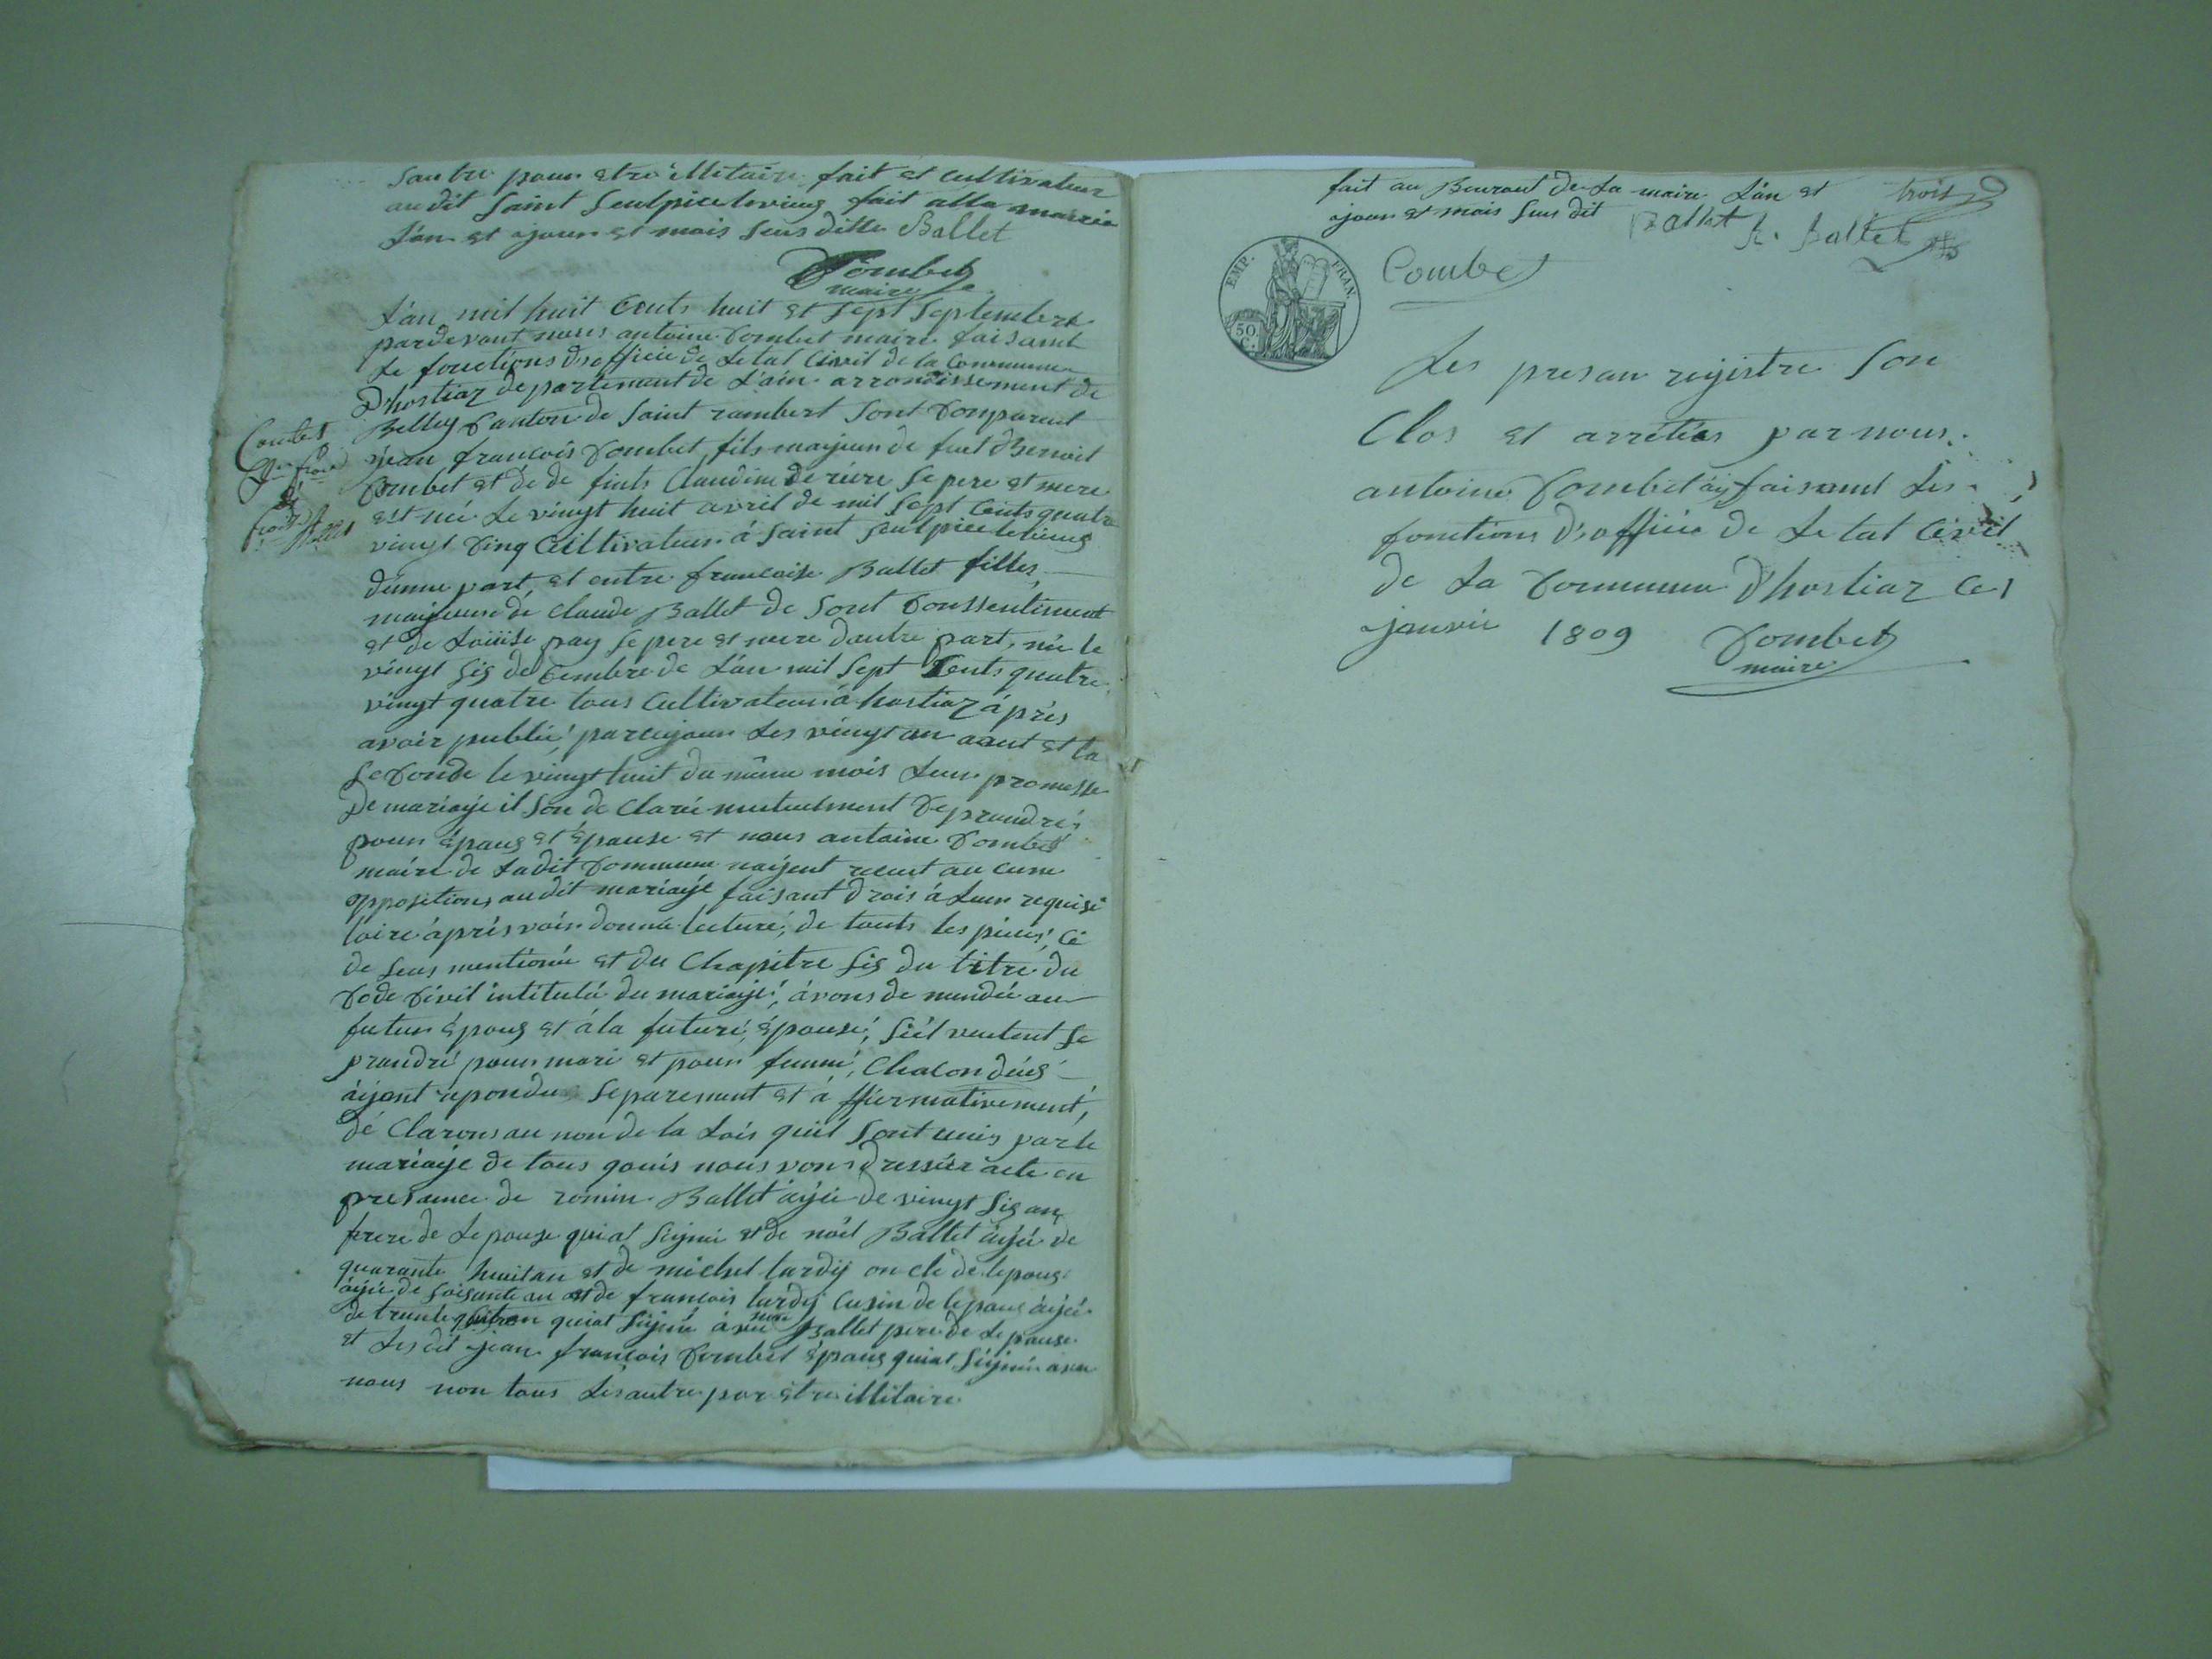 Sautre pour etre illitaire fait et cultivateur
audit Saint Seulpice levieug fait alla mairie
L'an et ajour et mois Seus ditte Ballet
Combet
maire
L'an mil huit Cents huit et Sept Septembre
pardevant nous antoine Combet maire faisant
Le fonctions D'officie de Letat Civil de la Commune
D'hostiaz departemant de L'ain arrondissement de
Belley Canton de Saint rambert Sont Comparent
jean françois Combet fils majeur de fuet Benoit
Combet et de de fints Claudine Deriere Se pere et mere
est née Le vingt huit avril de mil Sept Cents quatre
vingt Cinq Cultivateur à Saint Seulpice levieug
d'unne part, et entre francoise Ballet filles
majeure de Claude Ballet de Sont Conssentiment
et de Louise pay Se pere et mere dautre part, née le
vingt Sig de Cembre de L'an mil Sept Cents quatre
vingt quatre tous Cultivateur à hostiaz après
avoir publié par ajour Les vingt un aout et la
Seconde le vingt huit du même mois Leur promesse
De mariaje il Son de Clarée mutuelment De prandre
pour Epaug et Epause et nous antoine Combet
maire de Ladit Commune naijent recut au cune
oppositions audit mariaje faisant Drois à Leur requisi
toire après voir donné lecture, de touts les pieces, Ci
de Seus mentionée et du Chapitre Sig du titre du
Code Civil intitulé du mariaje, avons de mandée au
futur époug et à la future épouse, Siél veulent Se
prandre pour mari et pour femme, Chacon d'eug
aijant repondu Separement et á ffirmativement,
dé Clarons au non de la Lois quil Sont unis par le
mariaje de tous quois nous vons dressér acte en
presance de romin Ballet ajée de vingt Sig an
frere de Lepouse quiat Signée et de noël Ballet ajée de
quarante huit an et de michel tardy on cle de lepoug
ajée de Soisante an et de francois tardy Cusin de lepoug ajée
de trante quatre an quiat Signé avec nous Ballet pere de Lepause
et Les dit jean françois Combet épaug quiat Signée avec
nous non tous Les autre par être illitaire
Combet
jn frois
et
Ballet
fait au Bouraut de La maire L'an et
ajour et mois Sus dit Ballet R. Ballet
trois
EMP. FRAN.
50 C.
Combet
Les presan rejistre Son
Clos et arrétées par nous
antoine Combet aij faisant Les
fonctions D'officie de Letat Civil
de La Commune D'hostiaz Ce 1
janvie 1809 Combet
maire